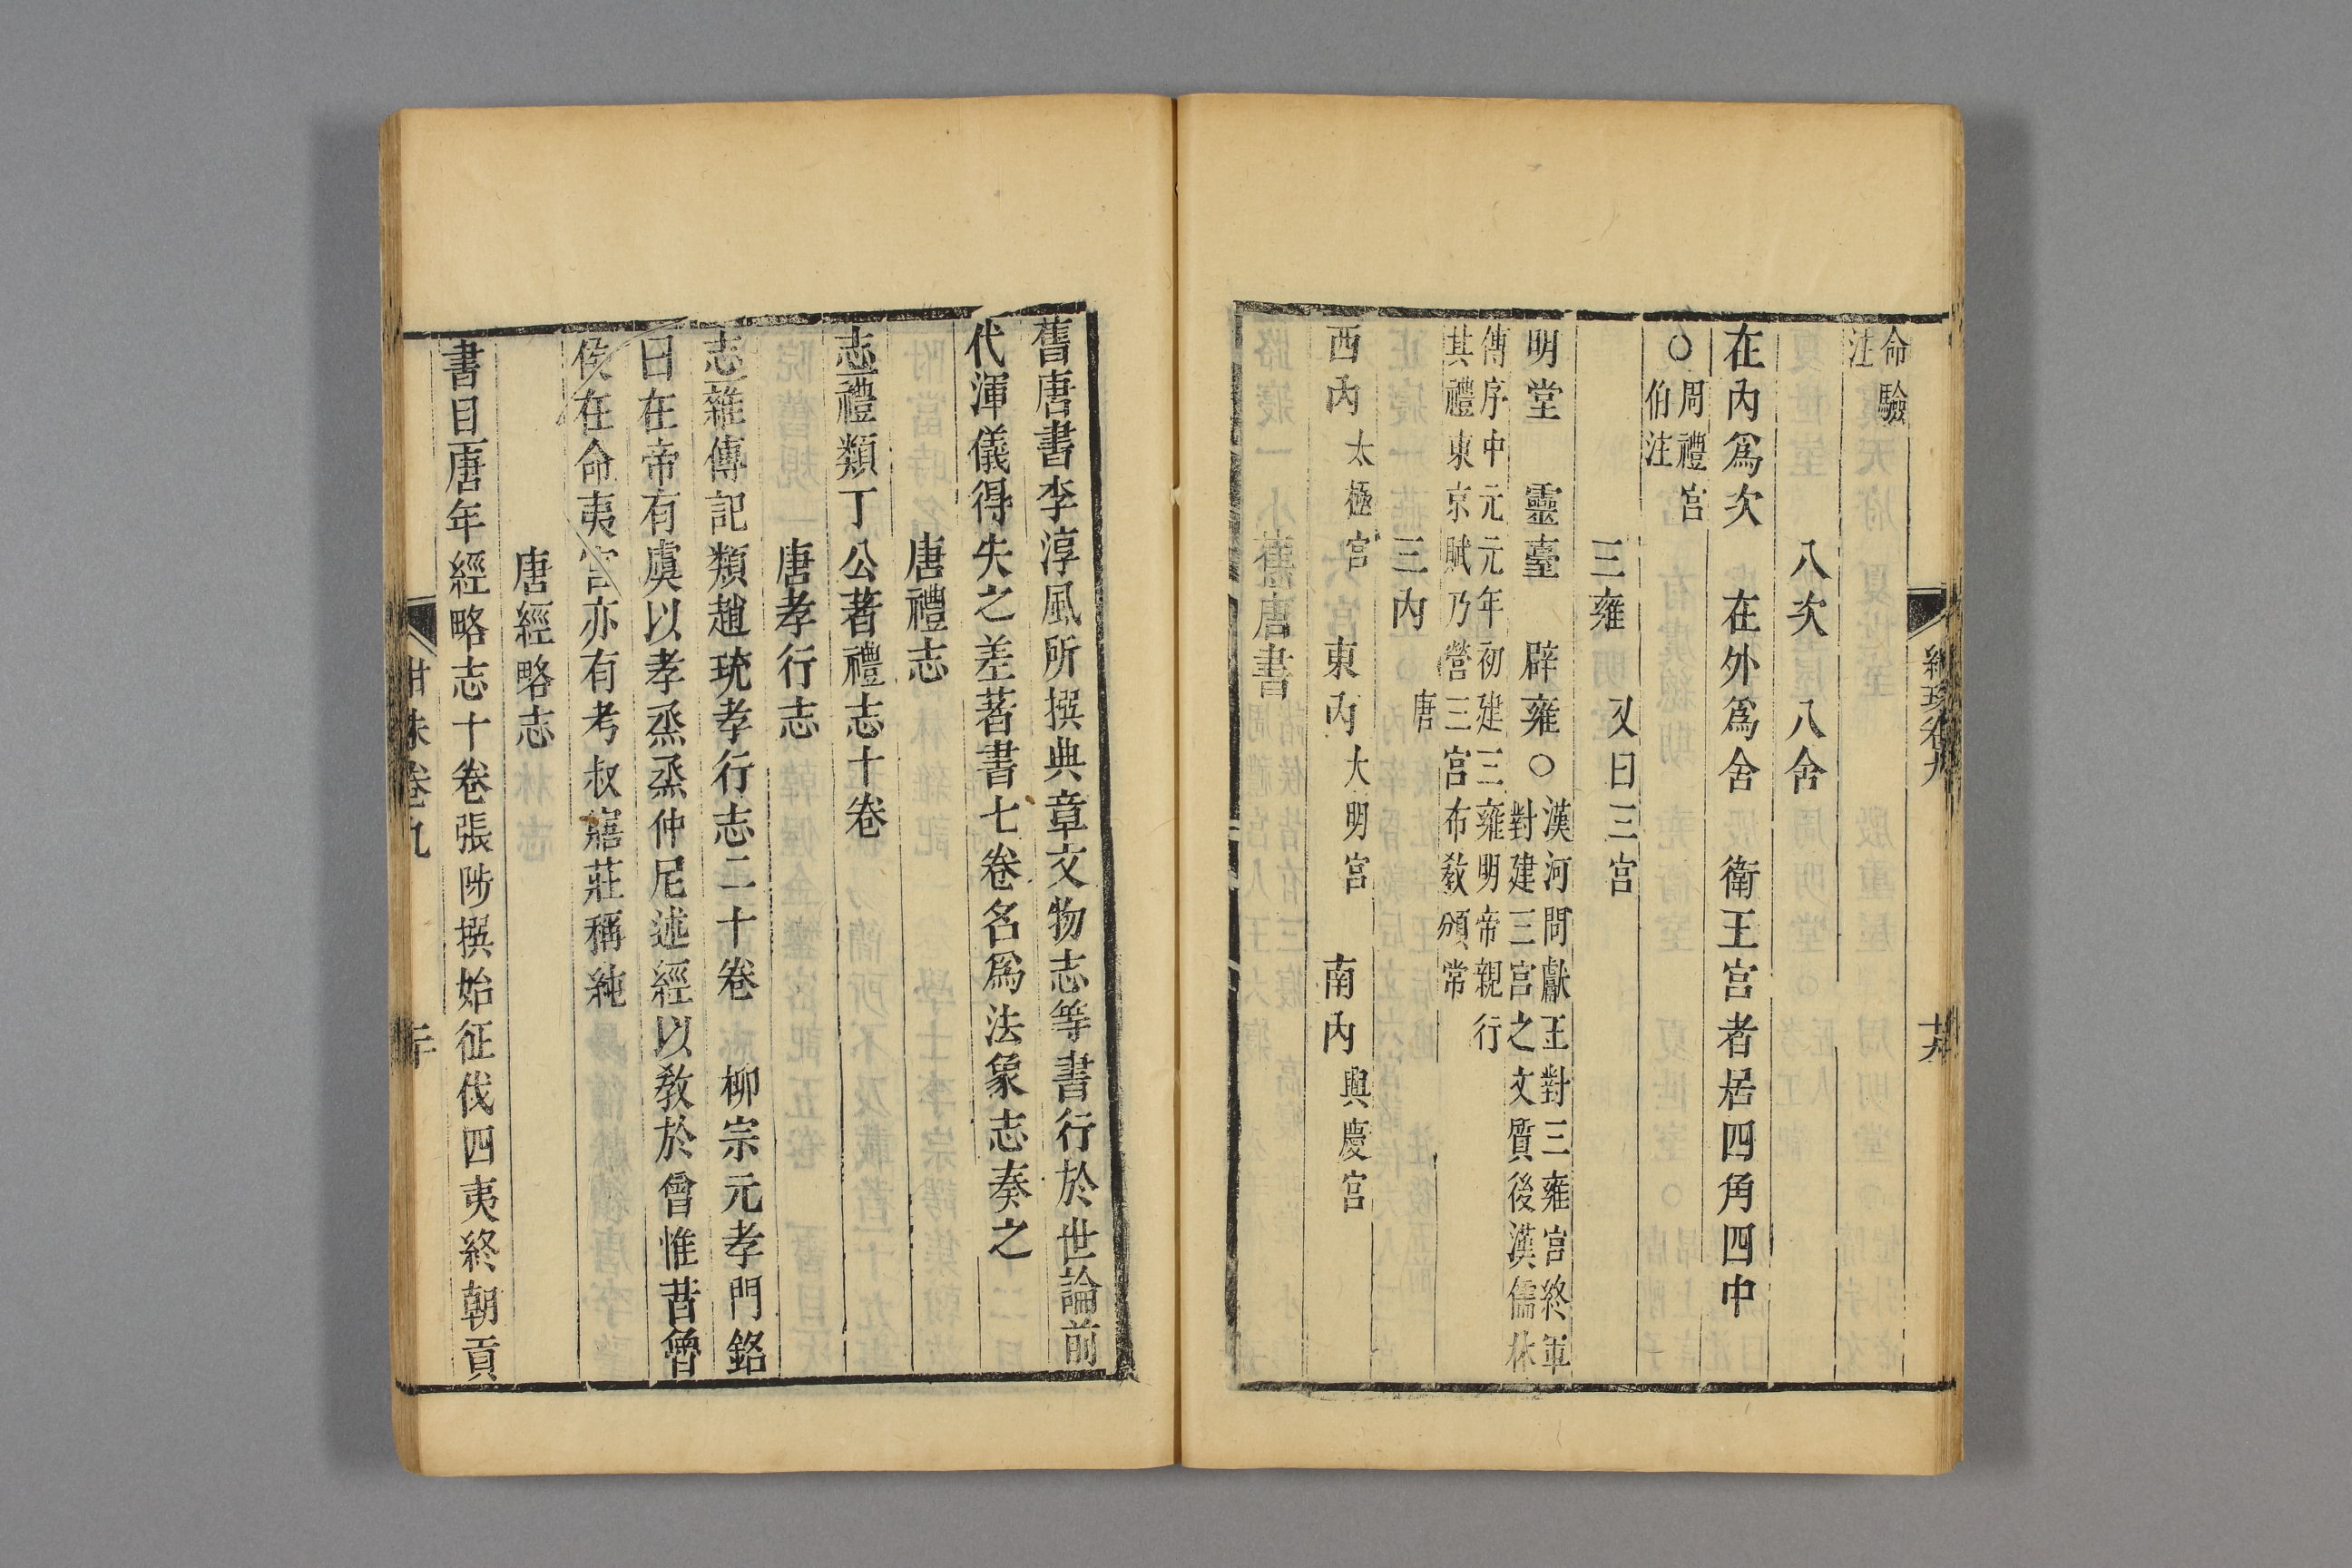 命驗
注
八次　八舍
在內爲次　在外爲舍　衛王宮者居四角四中
○周禮宮
伯注
三雍　又曰三宮
明堂　靈臺　辟雍○漢河間獻王對三雍宮終軍
對建三宮之文質後漢儒林
傳序中元元年初建三雍明帝親行
其禮東京賦乃營三宮布敎頒常
三內　唐
西內太極宮　東內大明宮　南內興慶宮
舊唐書
舊唐書李淳風所撰典章文物志等書行於世論前
代渾儀得失之差著書七卷名爲法象志奏之
唐禮志
志禮類丁公著禮志十卷
唐孝行志
志雜傳記類趙珫孝行志二十卷　柳宗元孝門銘
曰在帝有虞以孝烝烝仲尼述經以敎於曾惟昔魯
侯在命夷宮亦有考叔寤莊稱純
唐經略志
書目唐年經略志十卷張陟撰始征伐四夷終朝貢